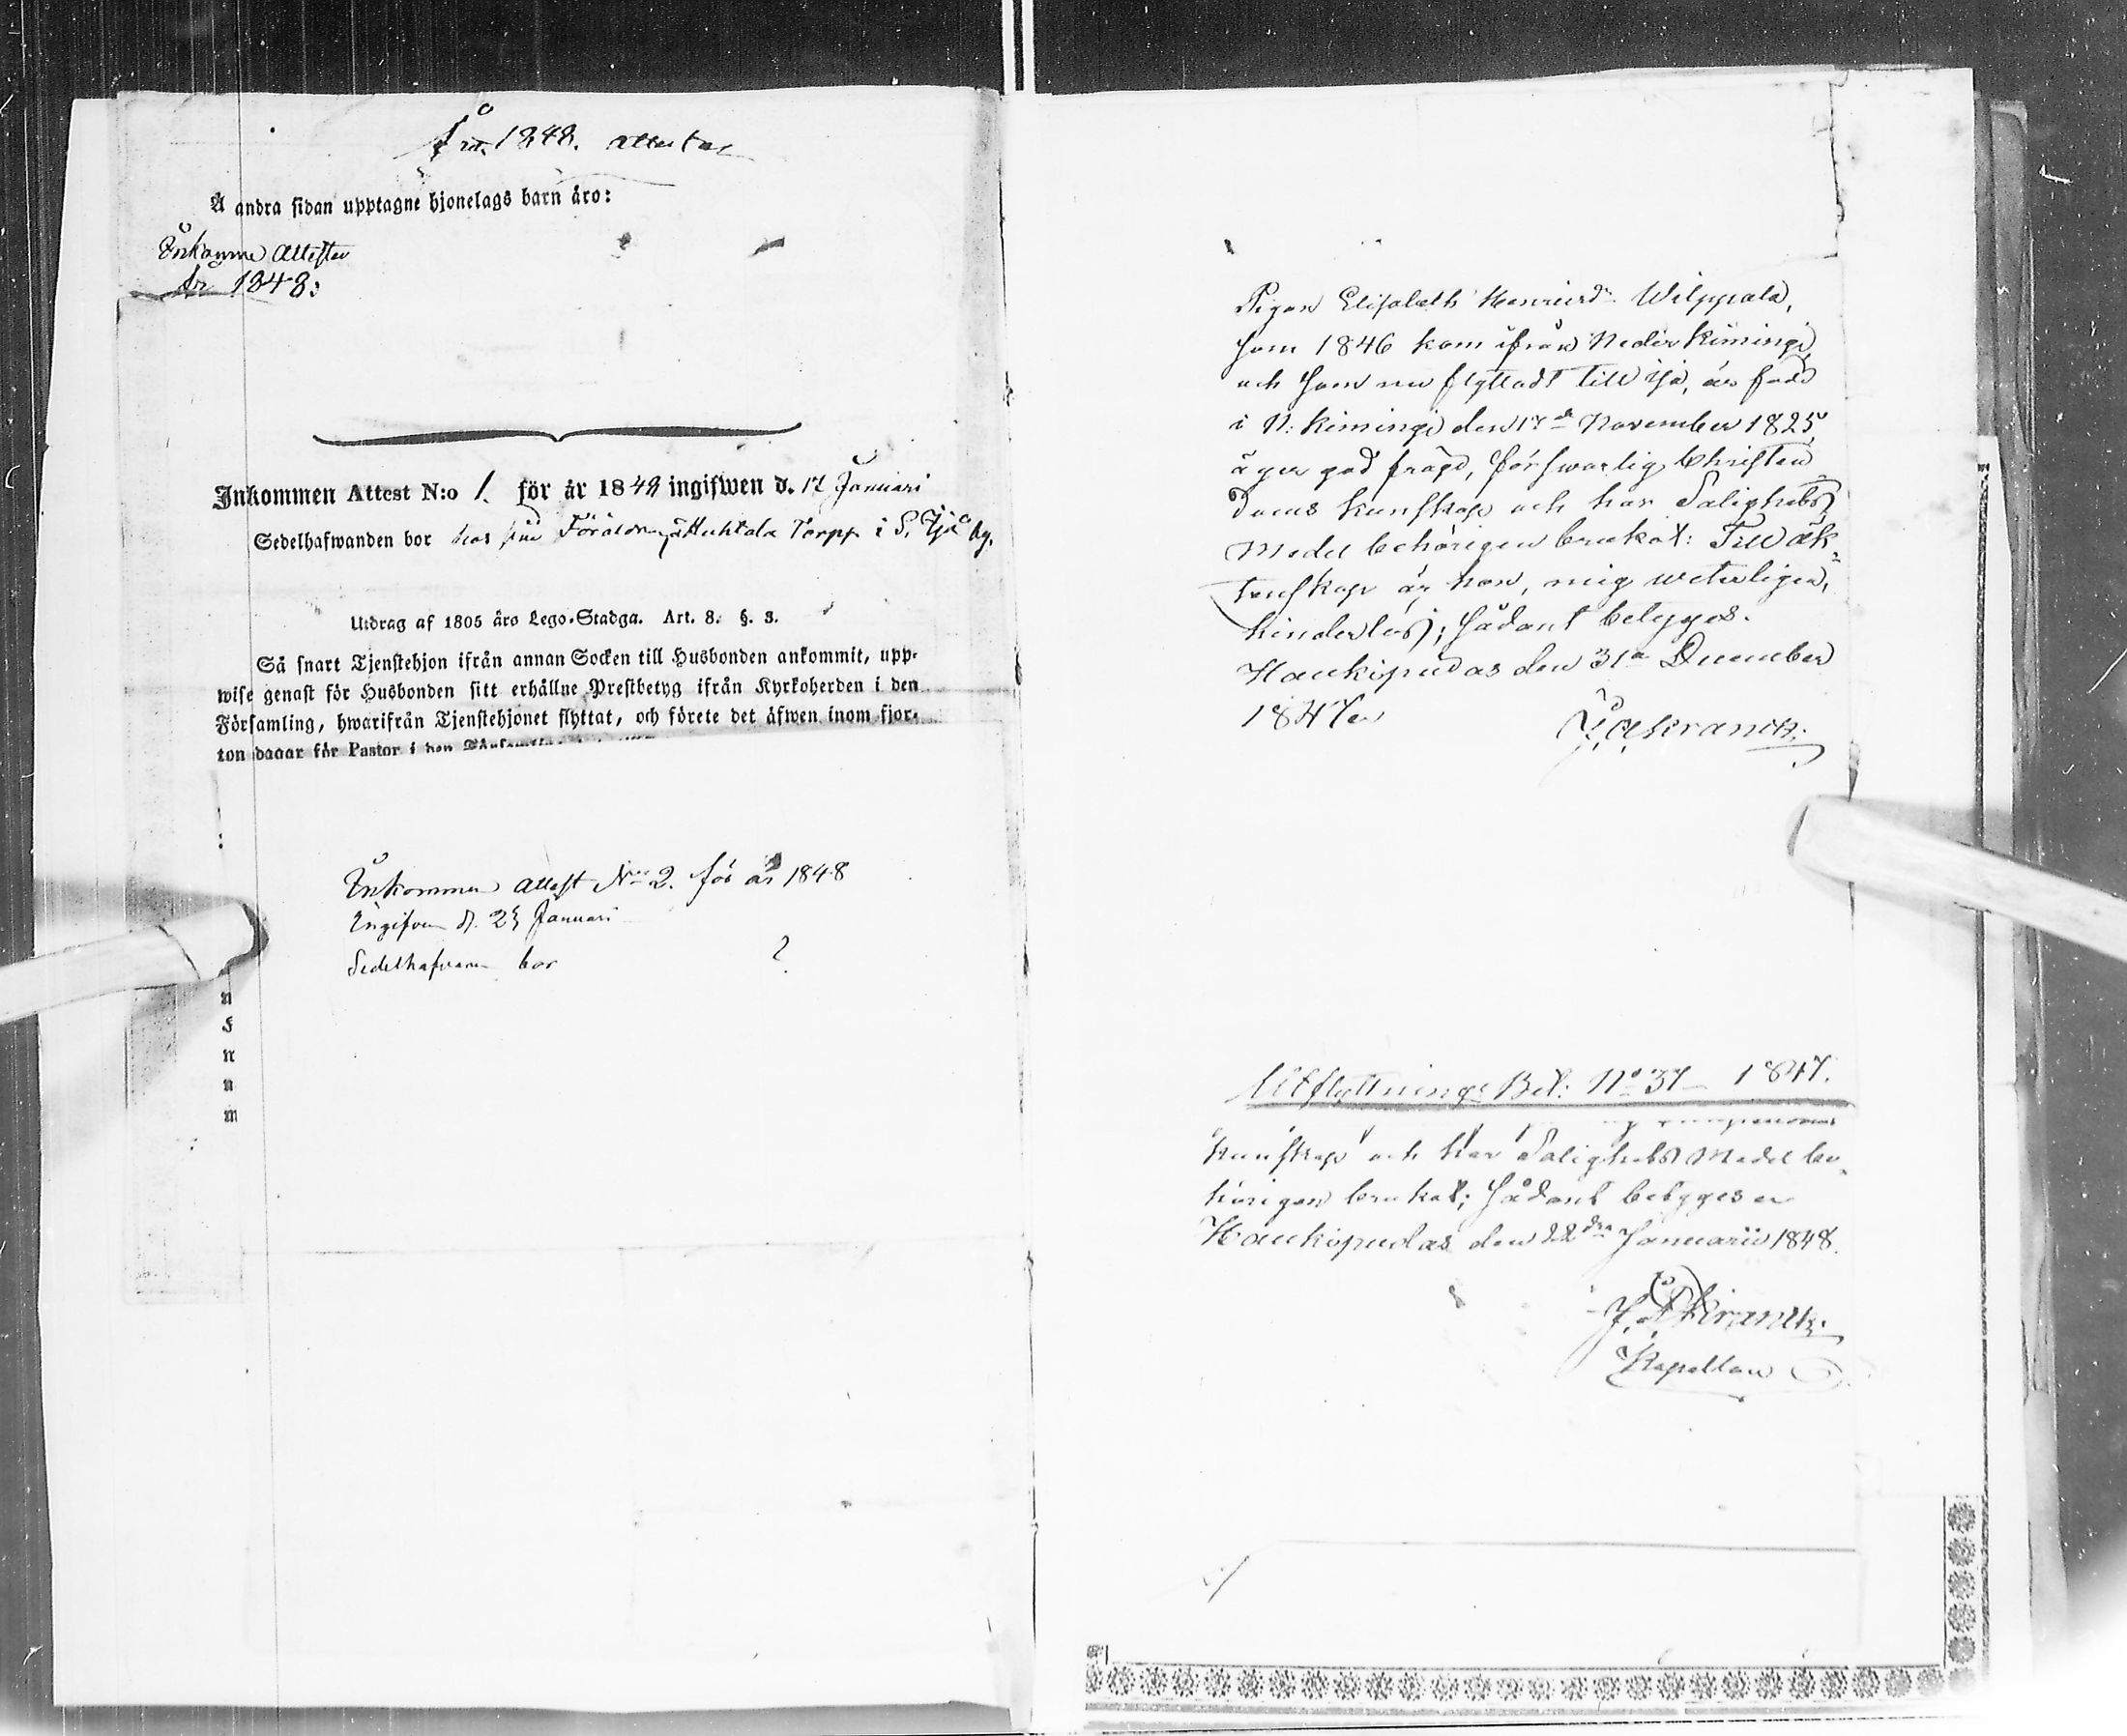 År 1848. attester
Å andra sidan upptagne hjonelags barn äro:
Inkomne Attester
År 1848:
Inkommen Attest N:o 1. för år 1848 ingifwen d. 17 Januari
Sedelhafwanden bor hos sine Föräldrar å Huhtala Torpp i S. Ijå by.
Utdrag af 1805 års Lego-Stadga. Art. 8. §. 3.
Så snart Tjenstehjon ifrån annan Socken till Husbonden ankommit, upp-
wise genast för Husbonden sitt erhållne Prestbetyg ifrån Kyrkoherden i den
Församling, hwarifrån Tjenstehjonet flyttat, och förete det äfwen inom fjor-
ton dagar för Pastor i den
Inkommen Attest No 2. för år 1848
Ingifven d. 25 Januari
Sedelhafvaren bor ?
n
n
n
m
Pigan Elisabeth Henricsdr Wilppala,
som 1846 kom ifrån Neder Kimingi
och som nu flyttadt till Ijå, är född
i N: Kimingi den 17de November 1825,
äger god frägd, förswarlig Christen-
doms kunskap och har Salighets
Medel behörigen brukat: Till äk-
tenskap är hon, mig weterligen,
hinderlös; sådant betyges.
Haukipudas den 31a December
1847
J. Åkrantz.
Utflyttnings Bet: No 37 1847.
kunskap och har Salighets Medel be-
hörigen brukat; sådant betyges
Haukipudas den 22dra Januarii 1848.
J. Åkrantz.
Kapellan